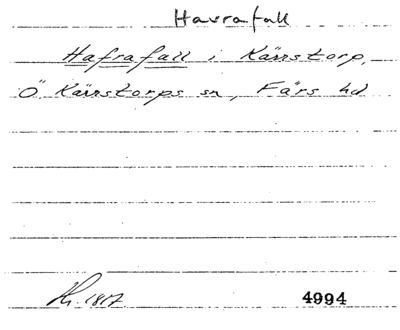 Havrafall
Hafrafall i Kärrstorp,
Ö Kärrstorps sn, Färs hd
1817
4994